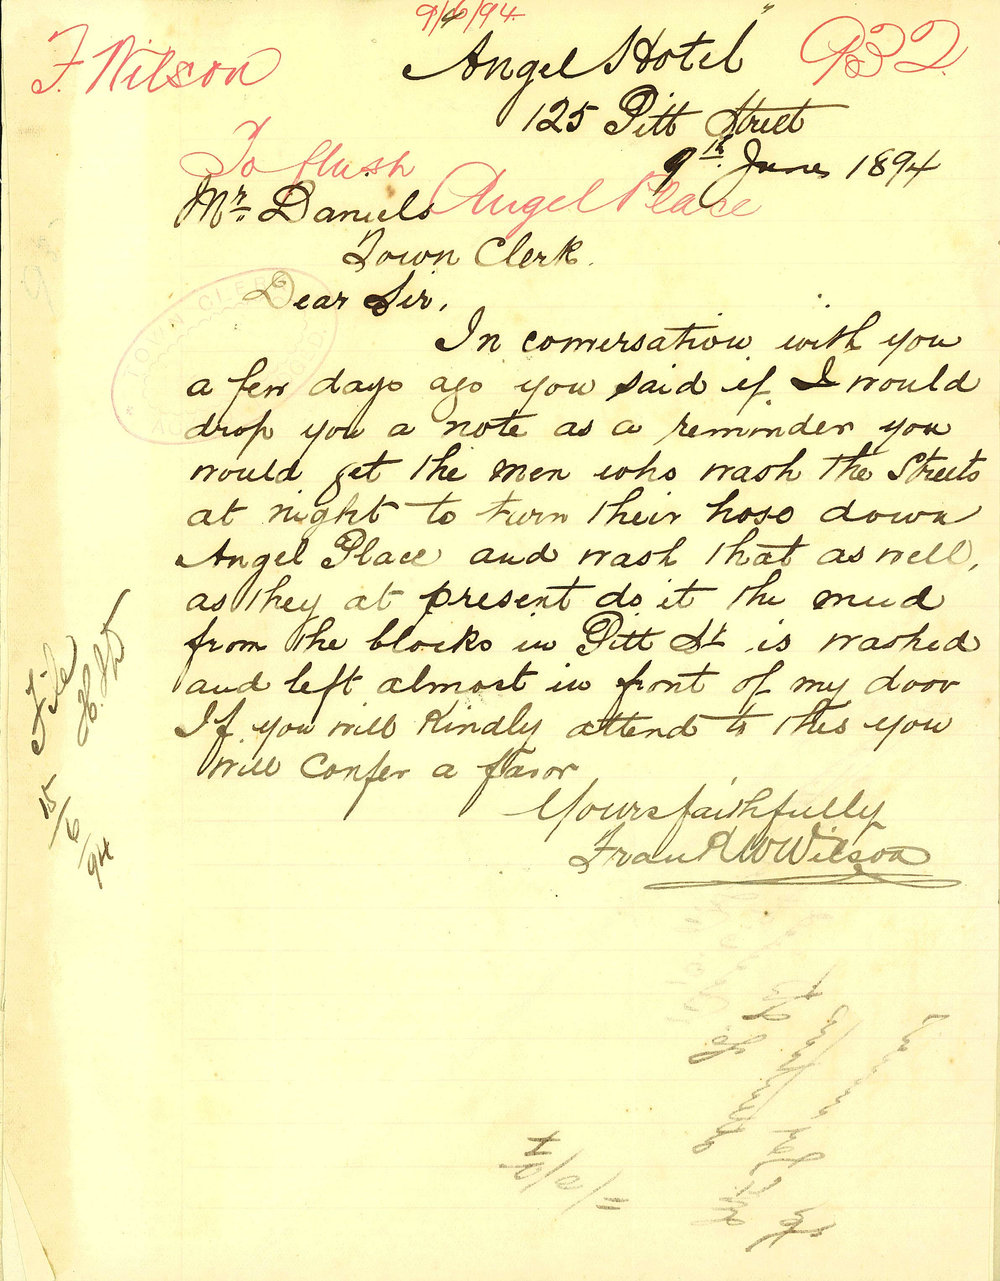 9/6/94.
F. Wilson
932
"Angel Hotel"
125 Pitt Street
To flush
Angel Place
9th June 1894
Mr. Daniels
Town Clerk.
Dear Sir,
TOWN CLERK
In conversation with you
a few days ago you said if I would
drop you a note as a reminder you
would get the men who wash the Streets
at night to turn their hose down
Angel Place and wash that as well,
as they at present do it the mud
from the blocks in Pitt St. is washed
and left almost in front of my door
If you will kindly attend to this you
will confer a favor
Yours faithfully
Frank W Wilson
File
15/6/94